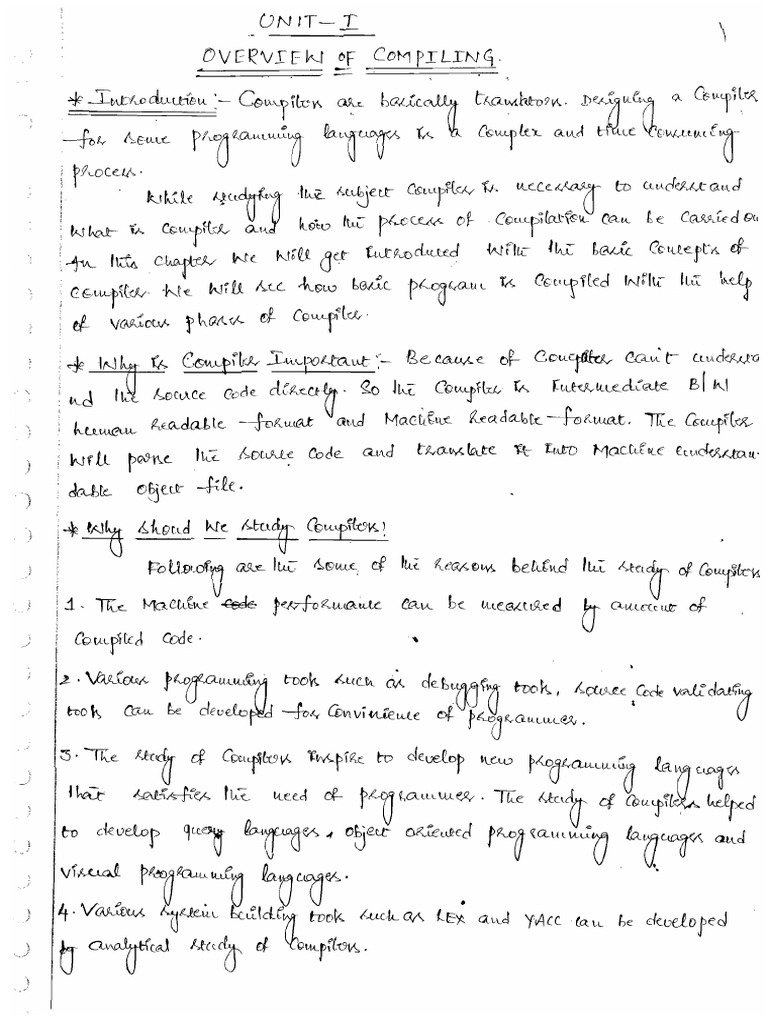 UNIT-I
1
OVERVIEW OF COMPILING.
* Introduction:- Compilers are basically translators. Designing a Compiler
for some programming languages is a Complex and time consuming
process.
While studying the subject Compiler is necessary to understand
what is compiler and how the process of Compilation can be carried ou
In this chapter we will get introduced with the basic concepts of
compiler. We will see how basic program is compiled with the help
of various phases of compiler.
* Why is Compiler Important:- Because of Computer can't understa
nd the source code directly. So the Compiler is intermediate B/W
human readable format and Machine readable format. The Compiler
will parse the source code and translate it into Machine understan-
dable object file.
* Why shoud we study Compilers?
Following are the some of the reasons behind the study of Compilers
1. The Machine code performance can be measured by amount of
compiled code.
2. Various programming tools such as debugging tools, source code validating
tools can be developed for convinience of programmer.
3. The study of compilers inspire to develop new programming languages
that satisfies the need of programmer. The study of compilers helped
to develop query languages, object oriented programming languages and
visual programming languages.
4. Various system building tools such as LEX and YACC can be developed
by analytical study of compilers.